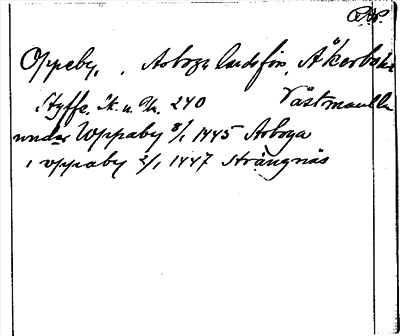 Oppeby, . Arboga landsförs, Åkerbo hd
Styffe. Sk. u. Un. 240 Västmanl. län
under Uppaby 8/1 1445 Arboga
i vppaby 2/1 1447 Strängnäs